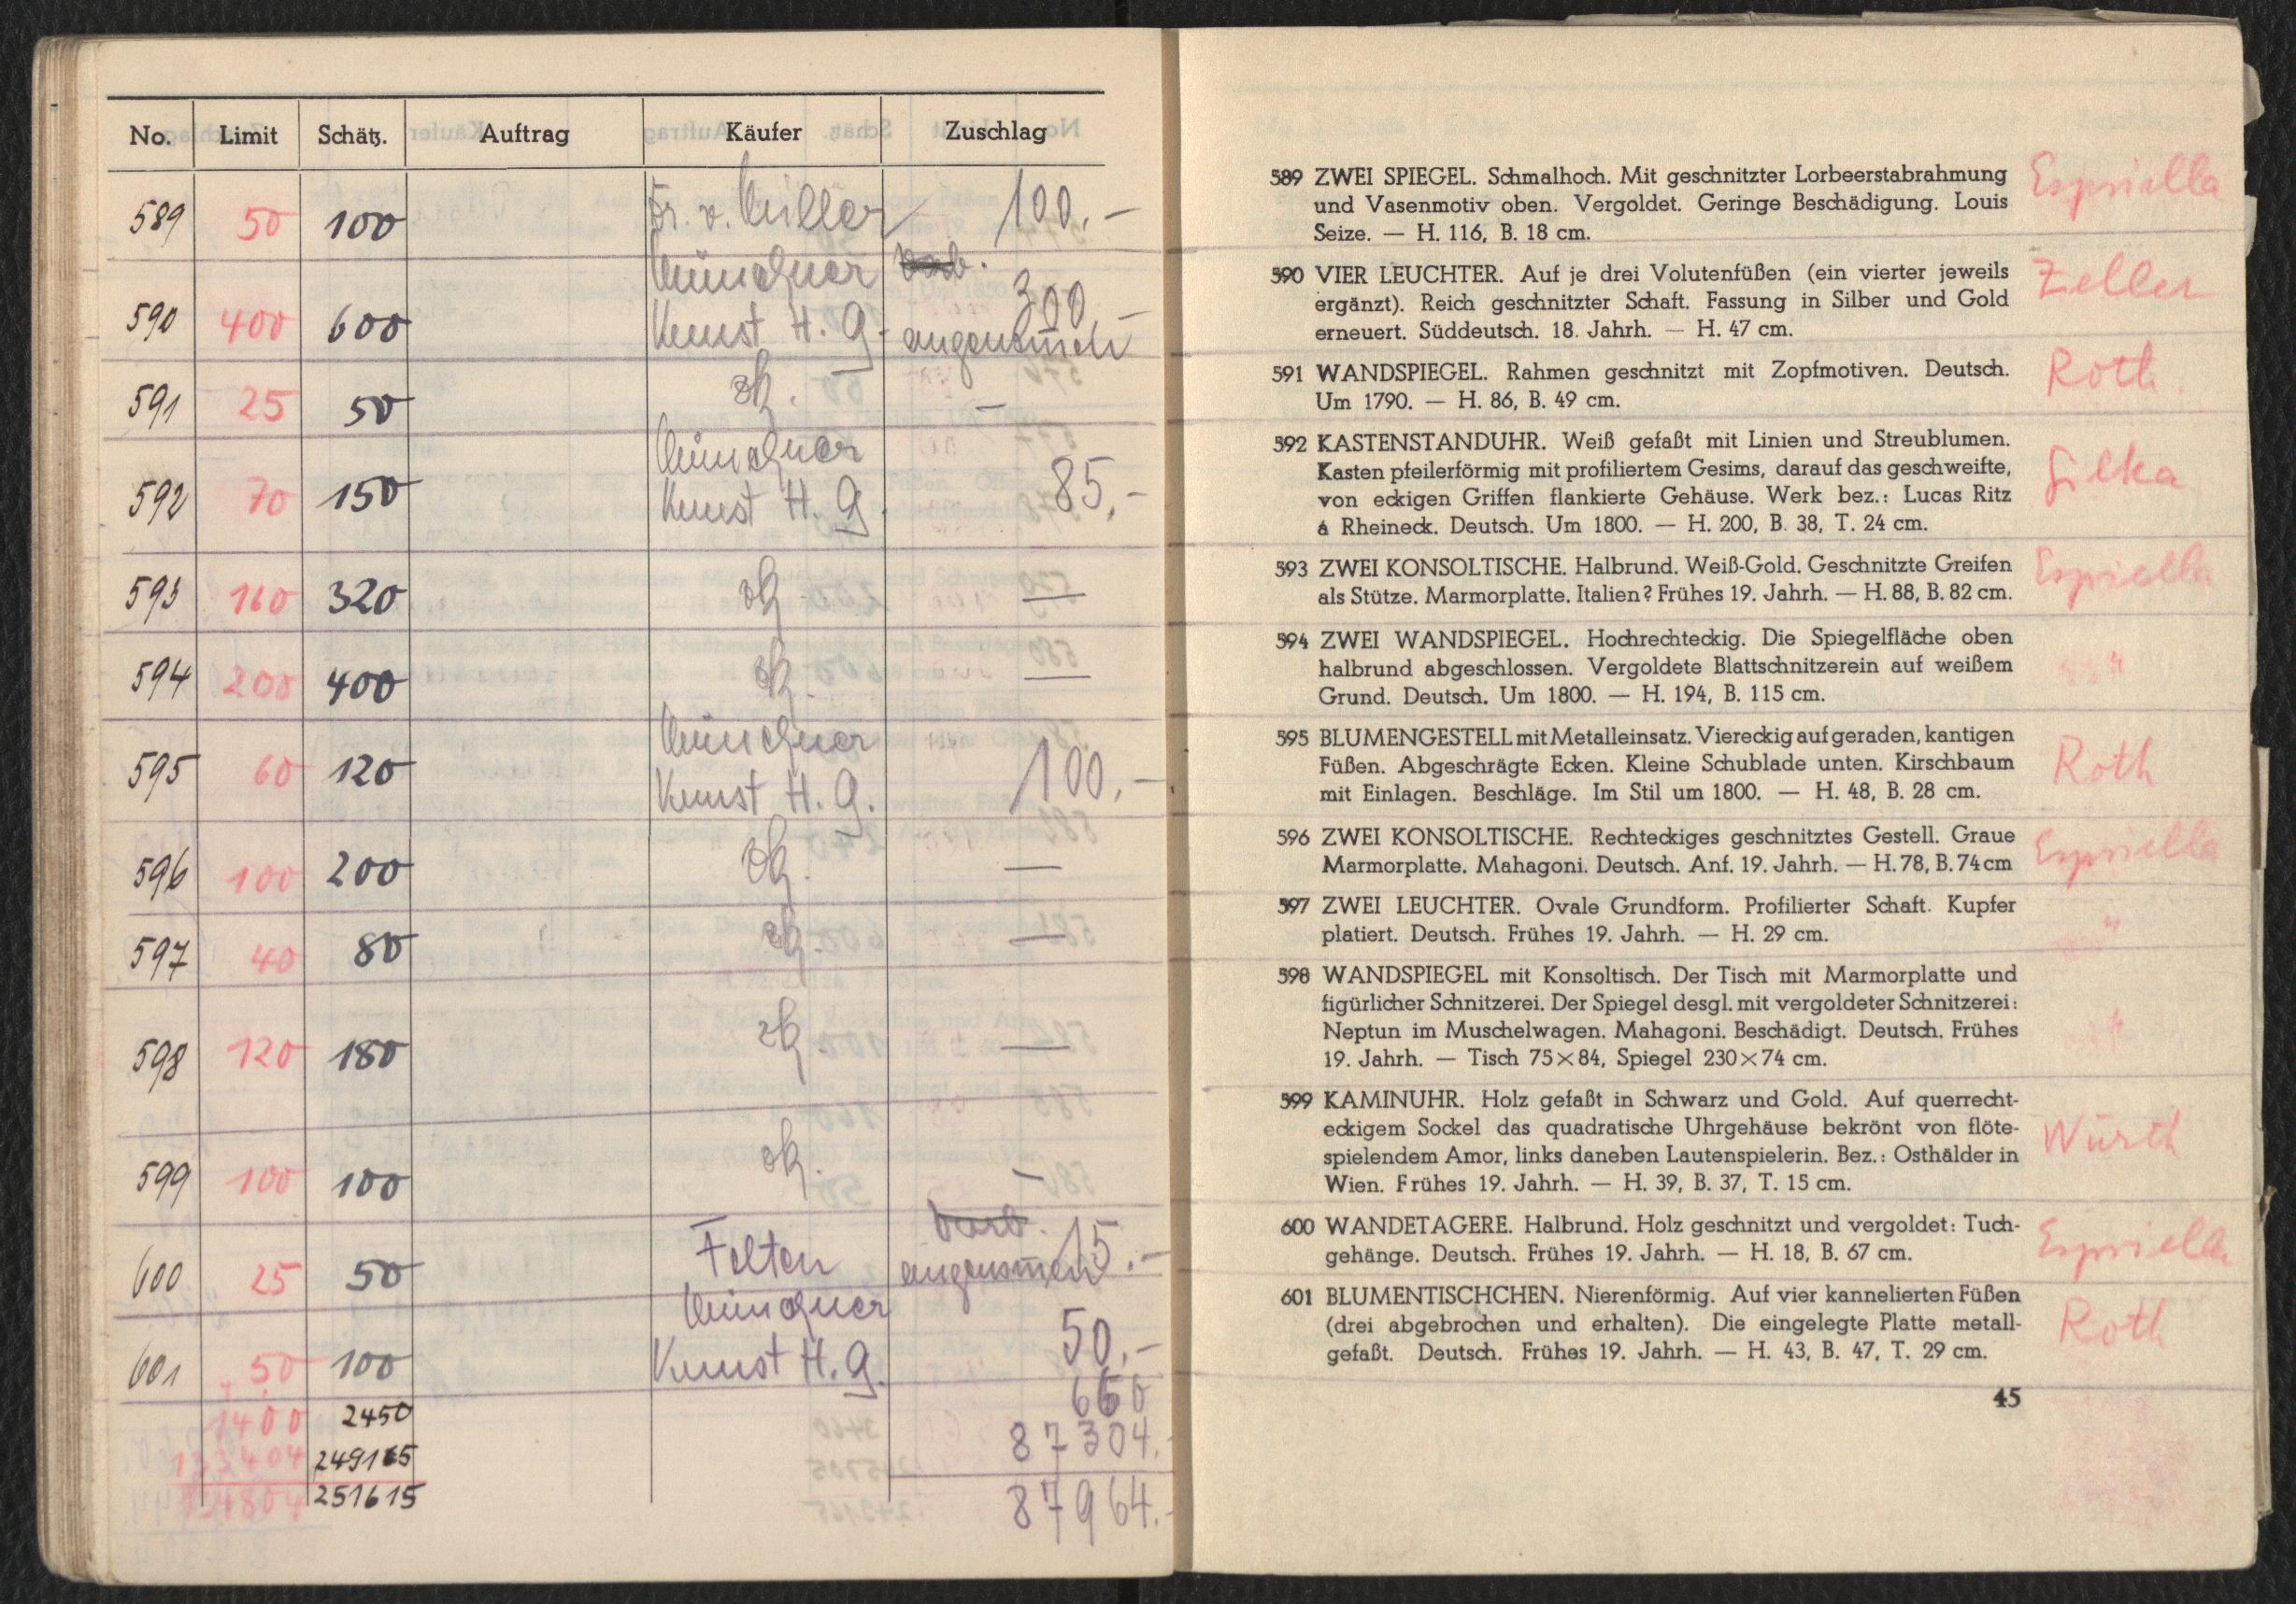 No. Limit Schätz. Auftrag Käufer Zuschlag
589 50 100 Dr. v. Miller 100.-
Münchner vorb.
590 400 600 Kunst H. G. 300.- angenommen
591 25 50 zk. —
Münchner
592 70 150 Kunst H. G. 85,-
593 160 320 zk. —
594 200 400 zk. —
Münchner
595 60 120 Kunst H. G. 100,-
596 100 200 zk. —
597 40 80 zk. —
598 120 180 zk. —
599 100 100 zk. —
vorb.
600 25 50 Felten angenommen 15.-
Münchner
601 50 100 Kunst H. G. 50,-
660
1400 2450 87304.-
133404 249165
134804 251615 87964.-
589 ZWEI SPIEGEL. Schmalhoch. Mit geschnitzter Lorbeerstabrahmung Espriella
und Vasenmotiv oben. Vergoldet. Geringe Beschädigung. Louis
Seize. — H. 116, B. 18 cm.
590 VIER LEUCHTER. Auf je drei Volutenfüßen (ein vierter jeweils Zeller
ergänzt). Reich geschnitzter Schaft. Fassung in Silber und Gold
erneuert. Süddeutsch. 18. Jahrh. — H. 47 cm.
591 WANDSPIEGEL. Rahmen geschnitzt mit Zopfmotiven. Deutsch. Roth
Um 1790. — H. 86, B. 49 cm.
592 KASTENSTANDUHR. Weiß gefaßt mit Linien und Streublumen.
Kasten pfeilerförmig mit profiliertem Gesims, darauf das geschweifte, Gilka
von eckigen Griffen flankierte Gehäuse. Werk bez.: Lucas Ritz
á Rheineck. Deutsch. Um 1800. — H. 200, B. 38, T. 24 cm.
593 ZWEI KONSOLTISCHE. Halbrund. Weiß-Gold. Geschnitzte Greifen Espriella
als Stütze. Marmorplatte. Italien? Frühes 19. Jahrh. — H. 88, B. 82 cm.
594 ZWEI WANDSPIEGEL. Hochrechteckig. Die Spiegelfläche oben
halbrund abgeschlossen. Vergoldete Blattschnitzerein auf weißem "
Grund. Deutsch. Um 1800. — H. 194, B. 115 cm.
595 BLUMENGESTELL mit Metalleinsatz. Viereckig auf geraden, kantigen
Füßen. Abgeschrägte Ecken. Kleine Schublade unten. Kirschbaum Roth
mit Einlagen. Beschläge. Im Stil um 1800. — H. 48, B. 28 cm.
596 ZWEI KONSOLTISCHE. Rechteckiges geschnitztes Gestell. Graue Espriella
Marmorplatte. Mahagoni. Deutsch. Anf. 19. Jahrh. — H. 78, B. 74 cm
597 ZWEI LEUCHTER. Ovale Grundform. Profilierter Schaft. Kupfer "
platiert. Deutsch. Frühes 19. Jahrh. — H. 29 cm.
598 WANDSPIEGEL mit Konsoltisch. Der Tisch mit Marmorplatte und
figürlicher Schnitzerei. Der Spiegel desgl. mit vergoldeter Schnitzerei:
Neptun im Muschelwagen. Mahagoni. Beschädigt. Deutsch. Frühes "
19. Jahrh. — Tisch 75×84, Spiegel 230×74 cm.
599 KAMINUHR. Holz gefaßt in Schwarz und Gold. Auf querrecht-
eckigem Sockel das quadratische Uhrgehäuse bekrönt von flöte- Würth
spielendem Amor, links daneben Lautenspielerin. Bez.: Osthälder in
Wien. Frühes 19. Jahrh. — H. 39, B. 37, T. 15 cm.
600 WANDETAGERE. Halbrund. Holz geschnitzt und vergoldet: Tuch- Espriella
gehänge. Deutsch. Frühes 19. Jahrh. — H. 18, B. 67 cm.
601 BLUMENTISCHCHEN. Nierenförmig. Auf vier kannelierten Füßen
(drei abgebrochen und erhalten). Die eingelegte Platte metall- Roth
gefaßt. Deutsch. Frühes 19. Jahrh. — H. 43, B. 47, T. 29 cm.
45